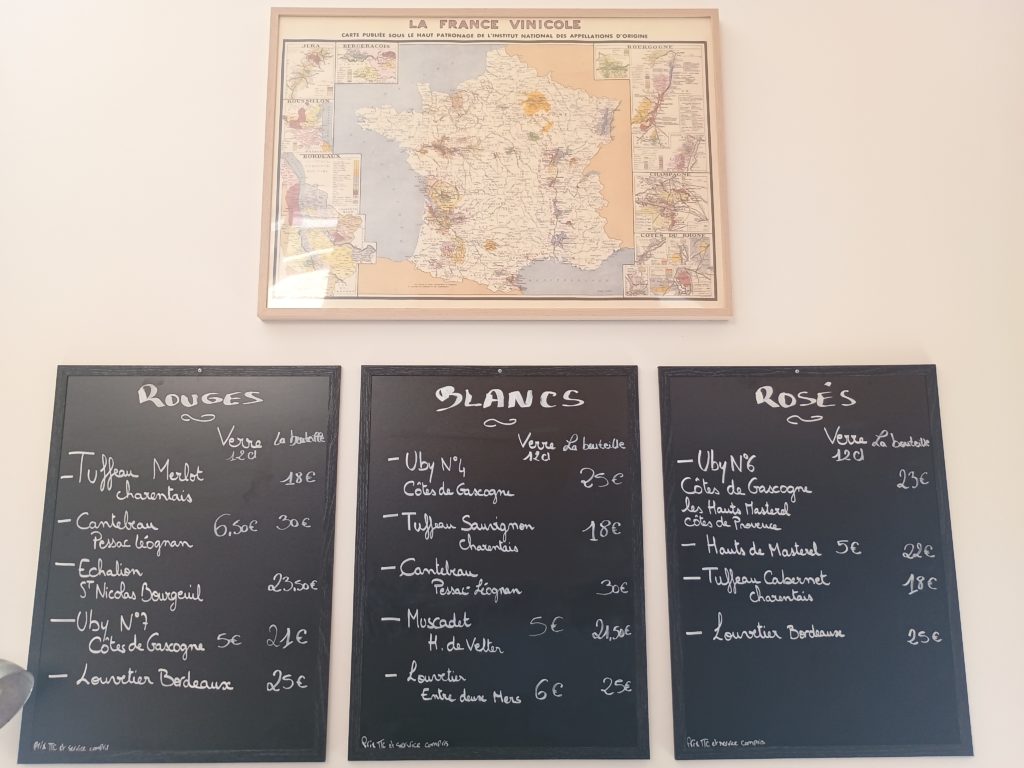 LA FRANCE VINICOLE
CARTE PUBLIÉE SOUS LE HAUT PATRONAGE DE L'INSTITUT NATIONAL DES APPELLATIONS D'ORIGINE
JURA
BERGERACOIS
BOURGOGNE
ROUSSILLON
BORDEAUX
CHAMPAGNE
CÔTES DU RHÔNE
ROUGES
Verre La bouteille
12cl
- Tuffeau Merlot 18€
charentais
- Cantebeau 6,50€ 30€
Pessac Léognan
- Echalion
ST Nicolas Bourgeuil 23,50€
- Uby N°7
Côtes de Gascogne 5€ 21€
- Louvetier Bordeaux 25€
Prix TTC et service compris
BLANCS
Verre La bouteille
12cl
- Uby N°4 25€
Côtes de Gascogne
- Tuffeau Sauvignon 18€
Charentais
- Cantebeau
Pessac-Léognan 30€
- Muscadet 5€ 21,50€
H. de Velter
- Louvetier
Entre deux Mers 6€ 25€
Prix TTC et service compris
ROSÉS
Verre La bouteille
12cl
- Uby N°6 23€
Côtes de Gascogne
les Hauts Masterel
Côtes de Provence
- Hauts de Masterel 5€ 22€
- Tuffeau Cabernet 18€
charentais
- Louvetier Bordeaux 25€
Prix TTC et service compris